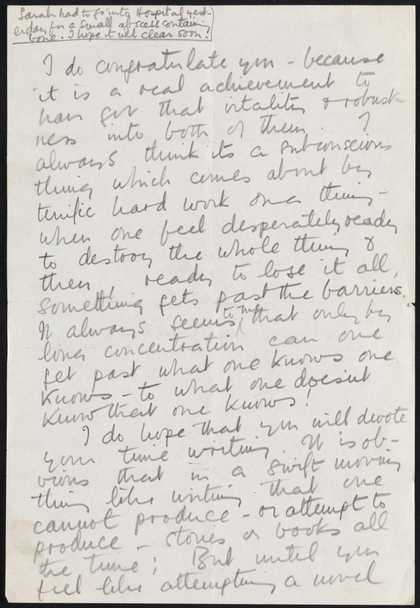 Sarah had to go into Hospital yest-
erday for a small abscess containing
bone. I hope it will clear soon!
I do congratulate you - because
it is a real achievement to
have got that vitality & robust-
ness into both of them. I
always think its a subconscious
thing which comes about by
terrific hard work on a thing -
when one feel desperately ready
to destroy the whole thing &
then, ready to lose it all,
something gets past the barriers.
It always seems to me that only by
long concentration can one
get past what one knows one
knows - to what one doesint
know that one knows!
I do hope that you will devote
your time writing. It is ob-
vious that in a swift moving
thing like writing that one
cannot produce - or attempt to
produce - stories or books all
the time; But until you
feel like attempting a novel